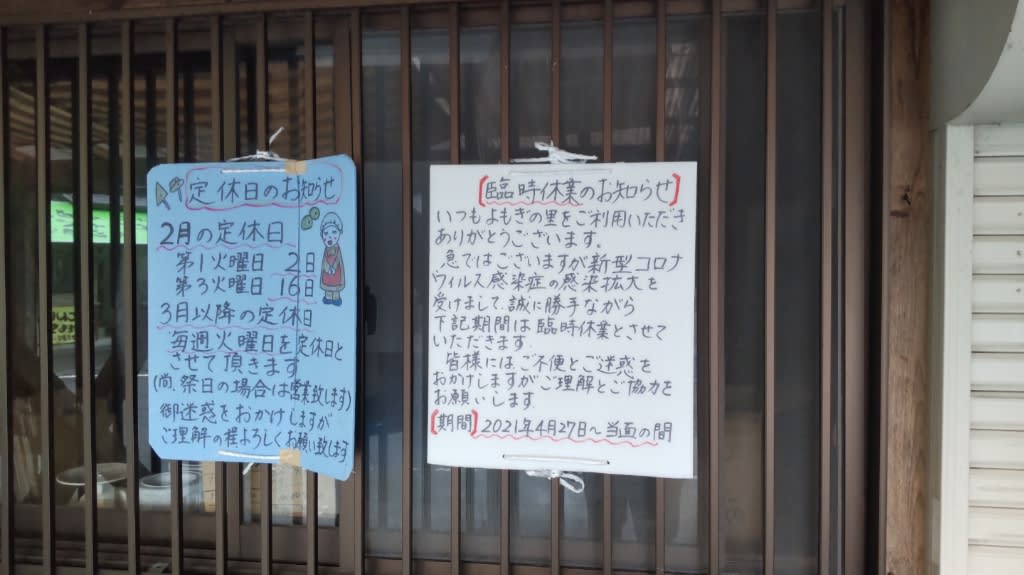 定休日のお知らせ
2月の定休日
第1火曜日 2日
第3火曜日 16日
3月以降の定休日
毎週火曜日を定休日と
させて頂きます
(尚、祭日の場合は営業致します)
御迷惑をおかけしますが
ご理解の程よろしくお願い致します
【臨時休業のお知らせ】
いつもよもぎの里をご利用いただき
ありがとうございます。
急ではございますが新型コロナ
ウィルス感染症の感染拡大を
受けまして、誠に勝手ながら
下記期間は臨時休業とさせて
いただきます。
皆様にはご不便とご迷惑を
おかけしますがご理解とご協力を
お願いします.
【期間】2021年4月27日～当面の間